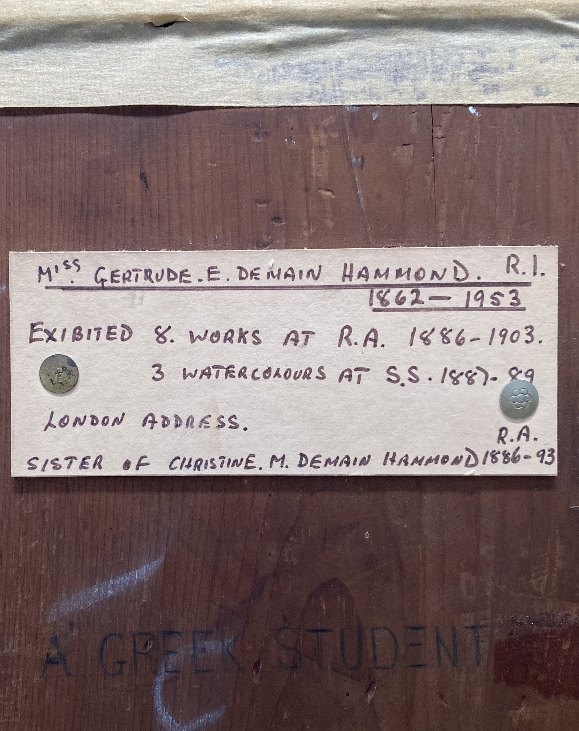 Miss. GERTRUDE. E. DEMAIN HAMMOND. R.I.
1862 — 1953
EXIBITED 8. WORKS AT R.A. 1886-1903.
3 WATERCOLOURS AT S.S. 1887-89
LONDON ADDRESS.
R.A.
SISTER OF CHRISTINE. M. DEMAIN HAMMOND 1886-93
A GREEK STUDENT